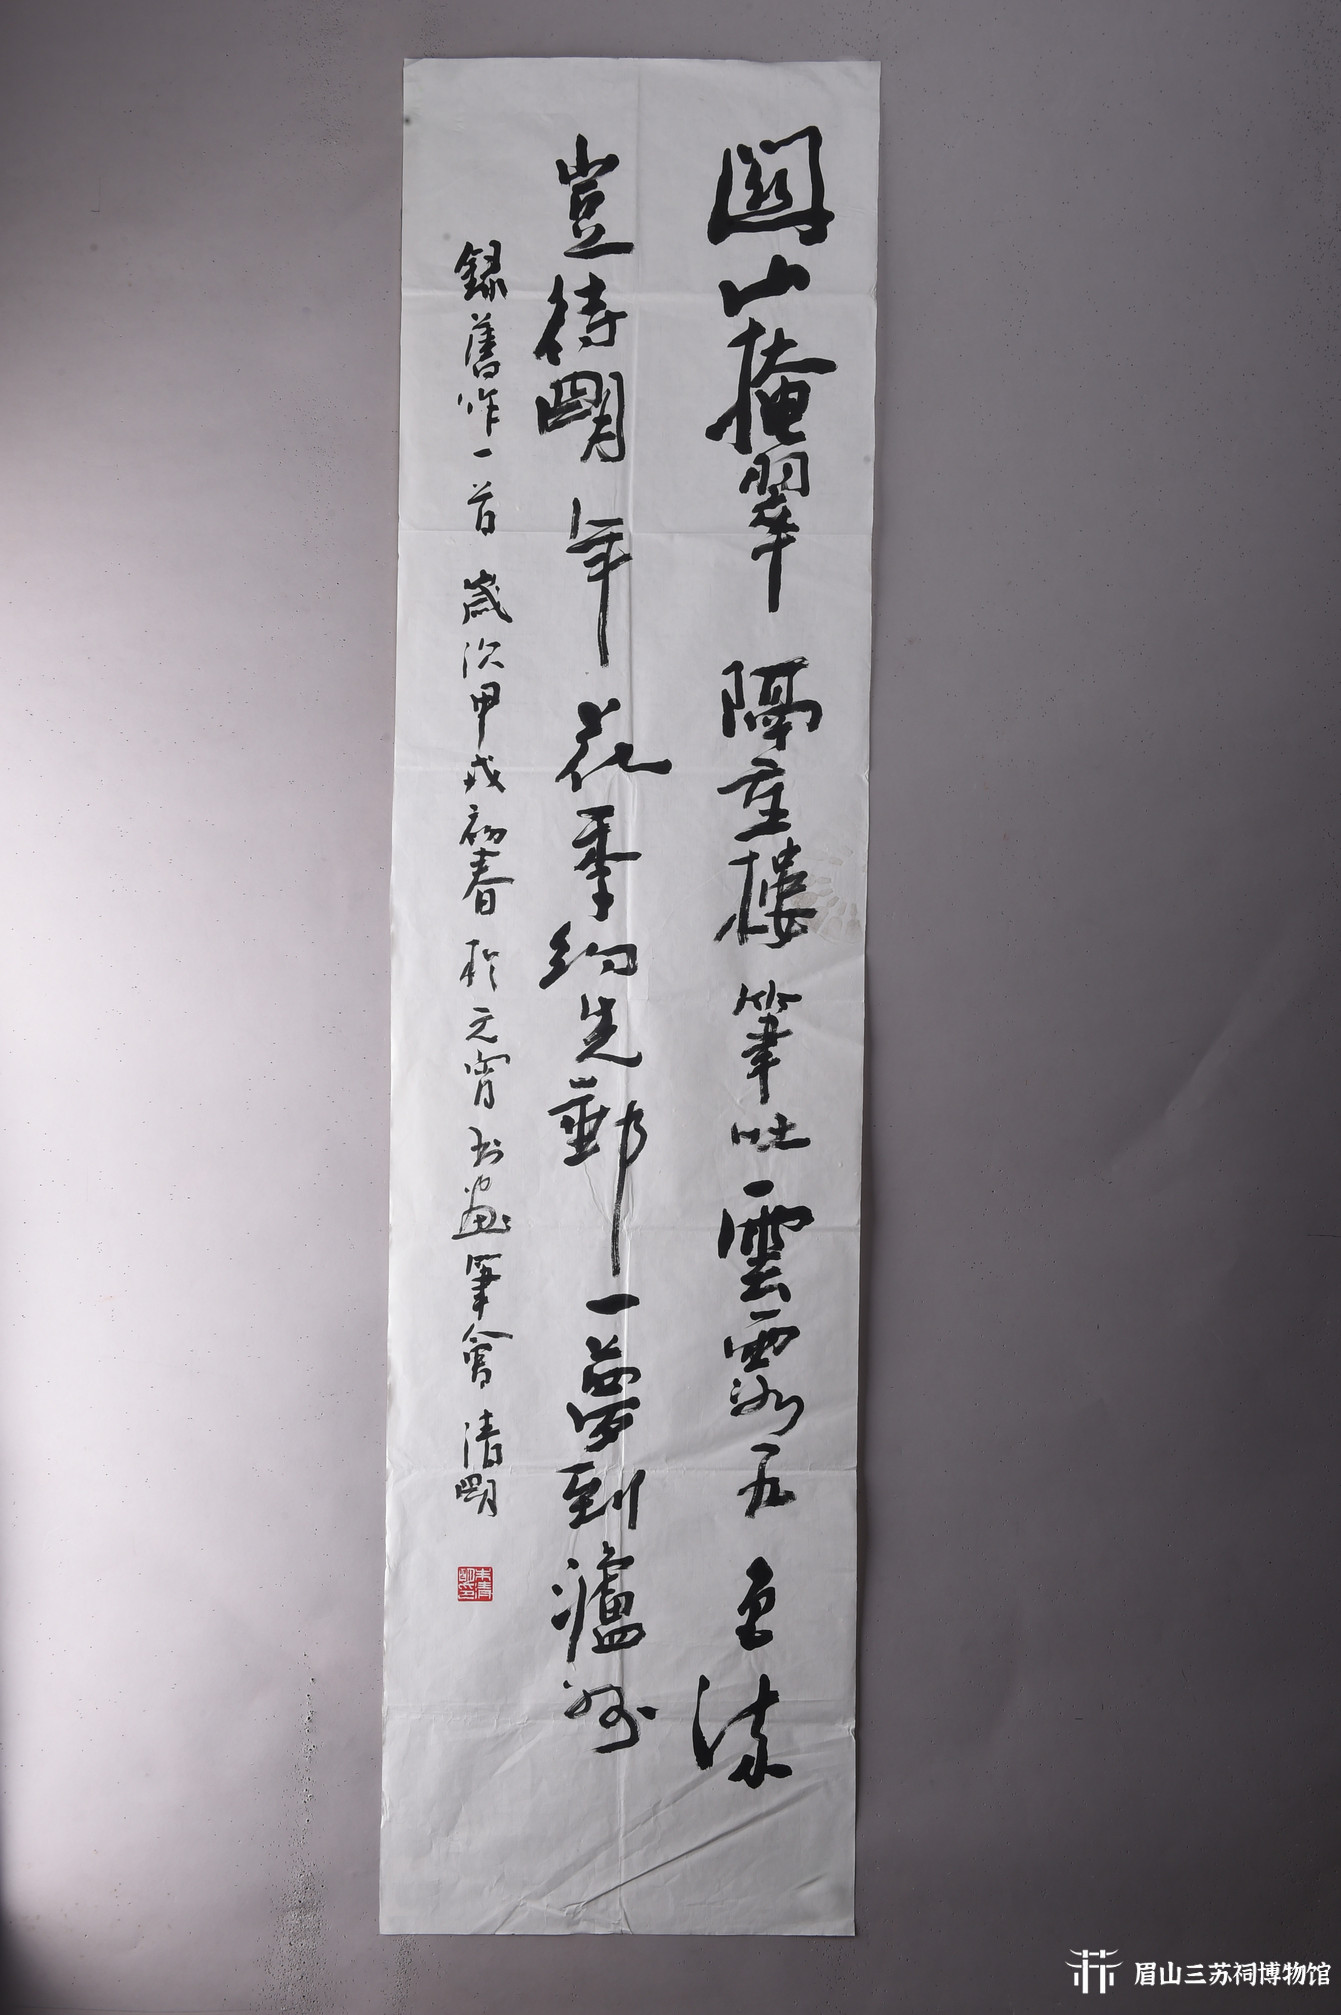 關山掩翠隔重樓筆吐雲霧五色流
豈待明年花季約先郵一夢到瀘州
錄舊作一首歲次甲戌初春於元宵书画筆會清明
朱清明印
眉山三苏祠博物馆